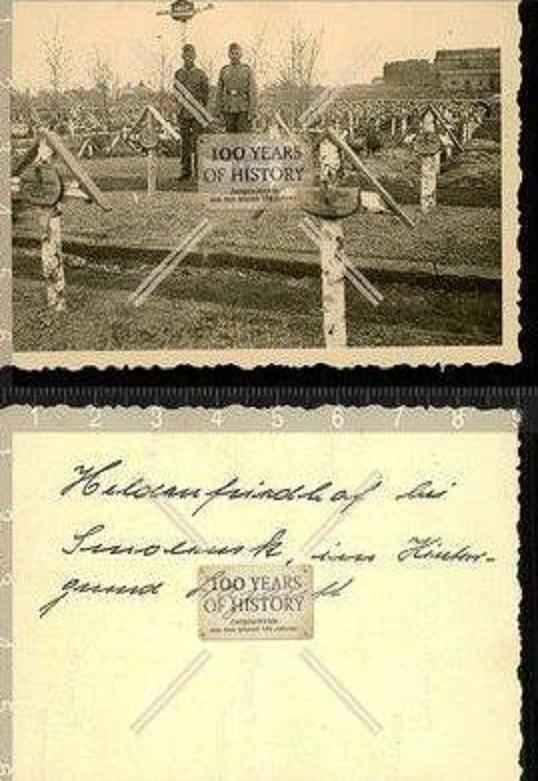 100 YEARS
OF HISTORY
1 2 3 4 5 6 7 8
Heldenfriedhof bei
Smolensk, im Hinter-
grund
100 YEARS
OF HISTORY